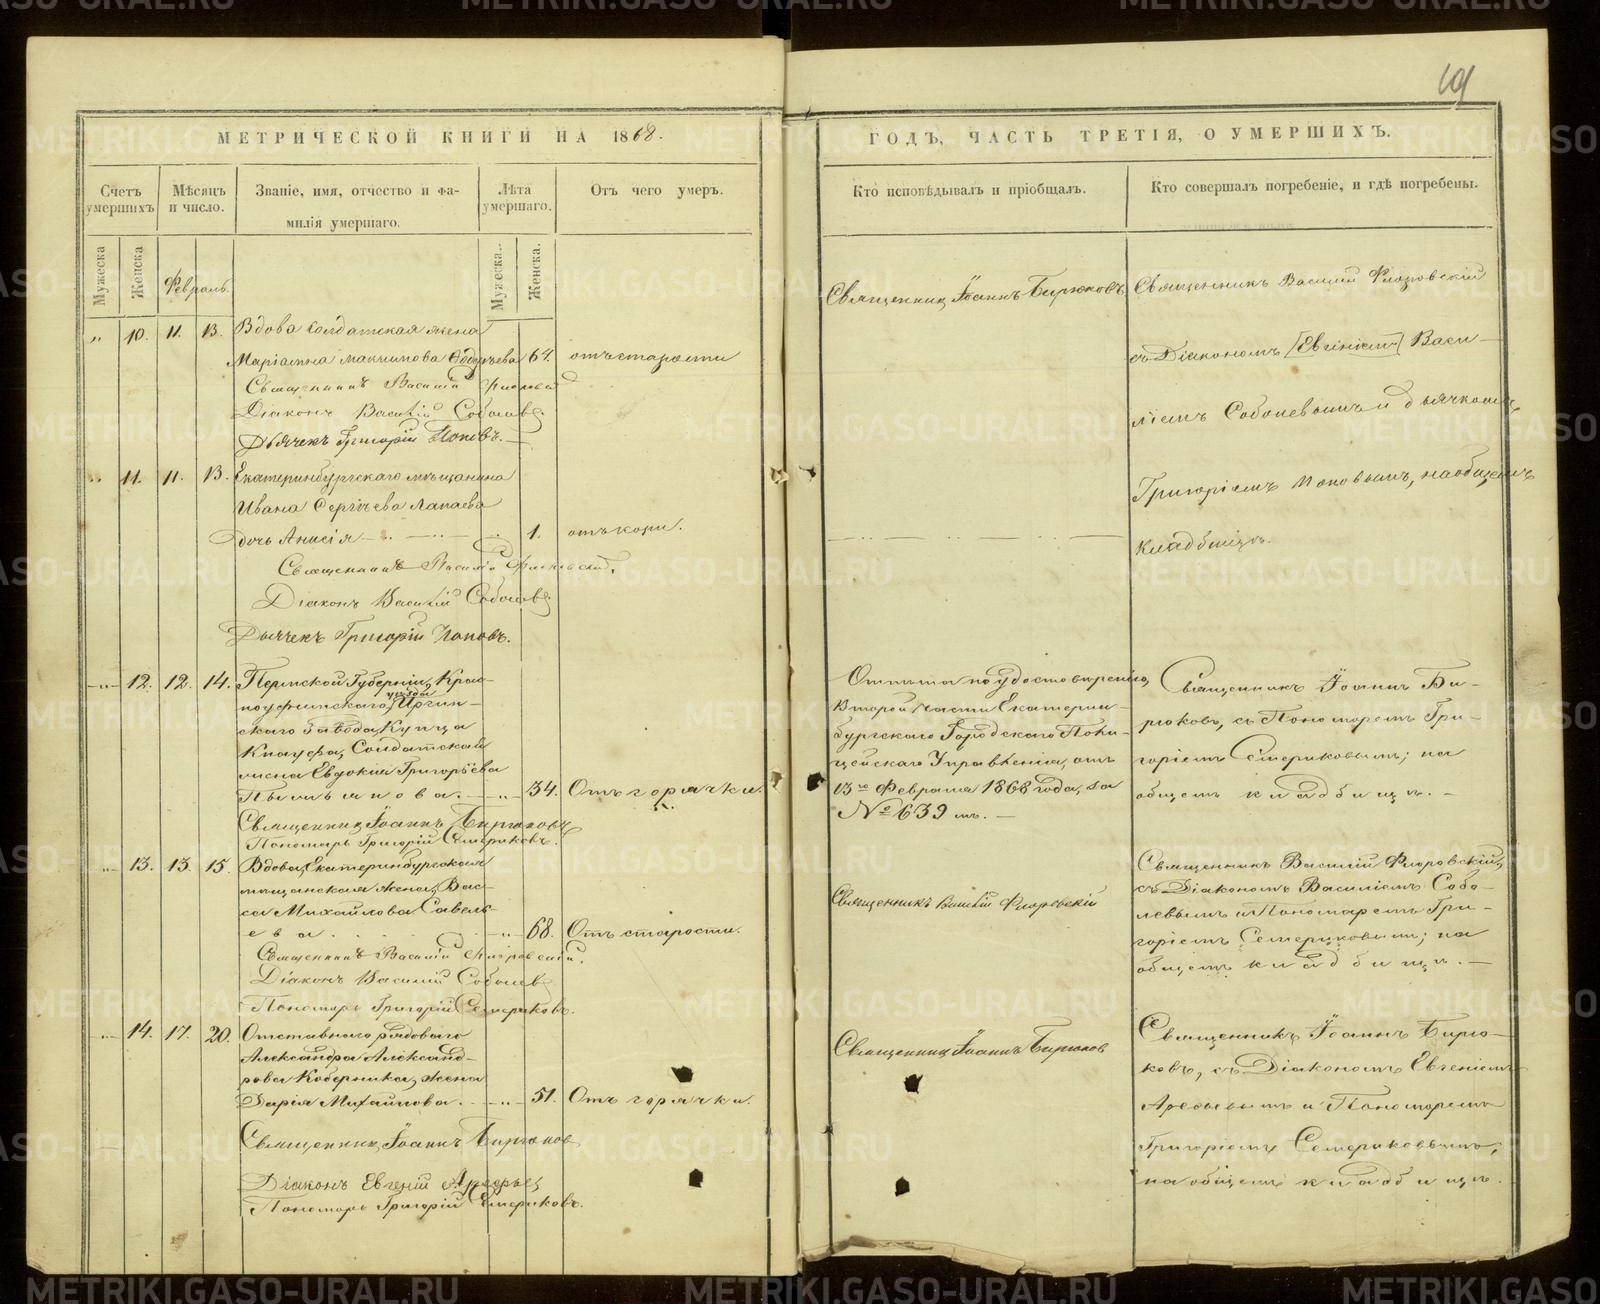 МЕТРИЧЕСКОЙ КНИГИ НА 1868.
Счетъ умершихъ
Мѣсяцъ и число.
Званіе, имя, отчество и фа-
милія умершаго.
Лѣта умершаго.
Отъ чего умеръ.
Мужеска
Женска
Февраль.
Мужеска.
Женска.
„ 10. 11. 13. Вдова солдатская жена
Маріамна Максимова 64. отъ старости
Священникъ Василій Флоровскій
Діаконъ Василій Соболевъ
Дьячекъ Григорій Поповъ.
„ 11. 11. 13. Екатеринбургскаго мѣщанина
Ивана Сергѣева Лапаева
дочь Анисія 1. отъ кори.
Священникъ Василій Флоровскій.
Діаконъ Василій Соболевъ
Дьячекъ Григорій Поповъ.
„ 12. 12. 14. Пермской Губерніи, Крас-
ноуфимскаго уѣзда Иргин-
скаго Завода, Купца
Кнауфа, Солдатская
жена Евдокія Григорьева
34. Отъ горячки.
Священникъ Іоаннъ Бирюковъ
Пономарь Григорій Семериковъ.
„ 13. 13. 15. Вдова, Екатеринбургская
мѣщанская жена, Вас-
са Михайлова Савель-
ева „ 68. Отъ старости.
Священникъ Василій Флоровскій.
Діаконъ Василій Соболевъ
Пономарь Григорій Семериковъ.
„ 14. 17. 20. Отставнаго рядоваго
Александра Александ-
рова Коберника, жена
Дарія Михайлова. „ 51. Отъ горячки.
Священникъ Іоаннъ Бирюковъ
Діаконъ Евгеній Арефьевъ
Пономарь Григорій Семериковъ.
ГОДЪ, ЧАСТЬ ТРЕТІЯ, О УМЕРШИХЪ.
Кто исповѣдывалъ и пріобщалъ.
Кто совершалъ погребеніе, и гдѣ погребены.
Священникъ Іоаннъ Бирюковъ
Священникъ Василій Флоровскій
съ Діакономъ [Евгеніемъ] Васи-
ліемъ Соболевымъ и дьячкомъ
Григоріемъ Поповымъ, на общемъ
кладбищѣ.
Отпѣта по удостовѣренію
Второй части Екатерин-
бургскаго Городскаго Поли-
цейскаго Управленія, отъ
13го Февраля 1868 года, за
№ 639 мъ. —
Священникъ Іоаннъ Би-
рюковъ, съ Пономаремъ Гри-
горіемъ Семериковымъ; на
общемъ кладбищѣ. —
Священникъ Василій Флоровскій
Священникъ Василій Флоровскій,
съ Діакономъ Василіемъ Собо-
левымъ и Пономаремъ Гри-
горіемъ Семериковымъ; на
общемъ кладбищѣ. —
Священникъ Іоаннъ Бирюков
Священникъ Іоаннъ Бирю-
ковъ, съ Діакономъ Евгеніемъ
Арефьевымъ и Пономаремъ
Григоріемъ Семериковымъ,
на общемъ кладбищѣ.
METRIKI.GASO-URAL.RU